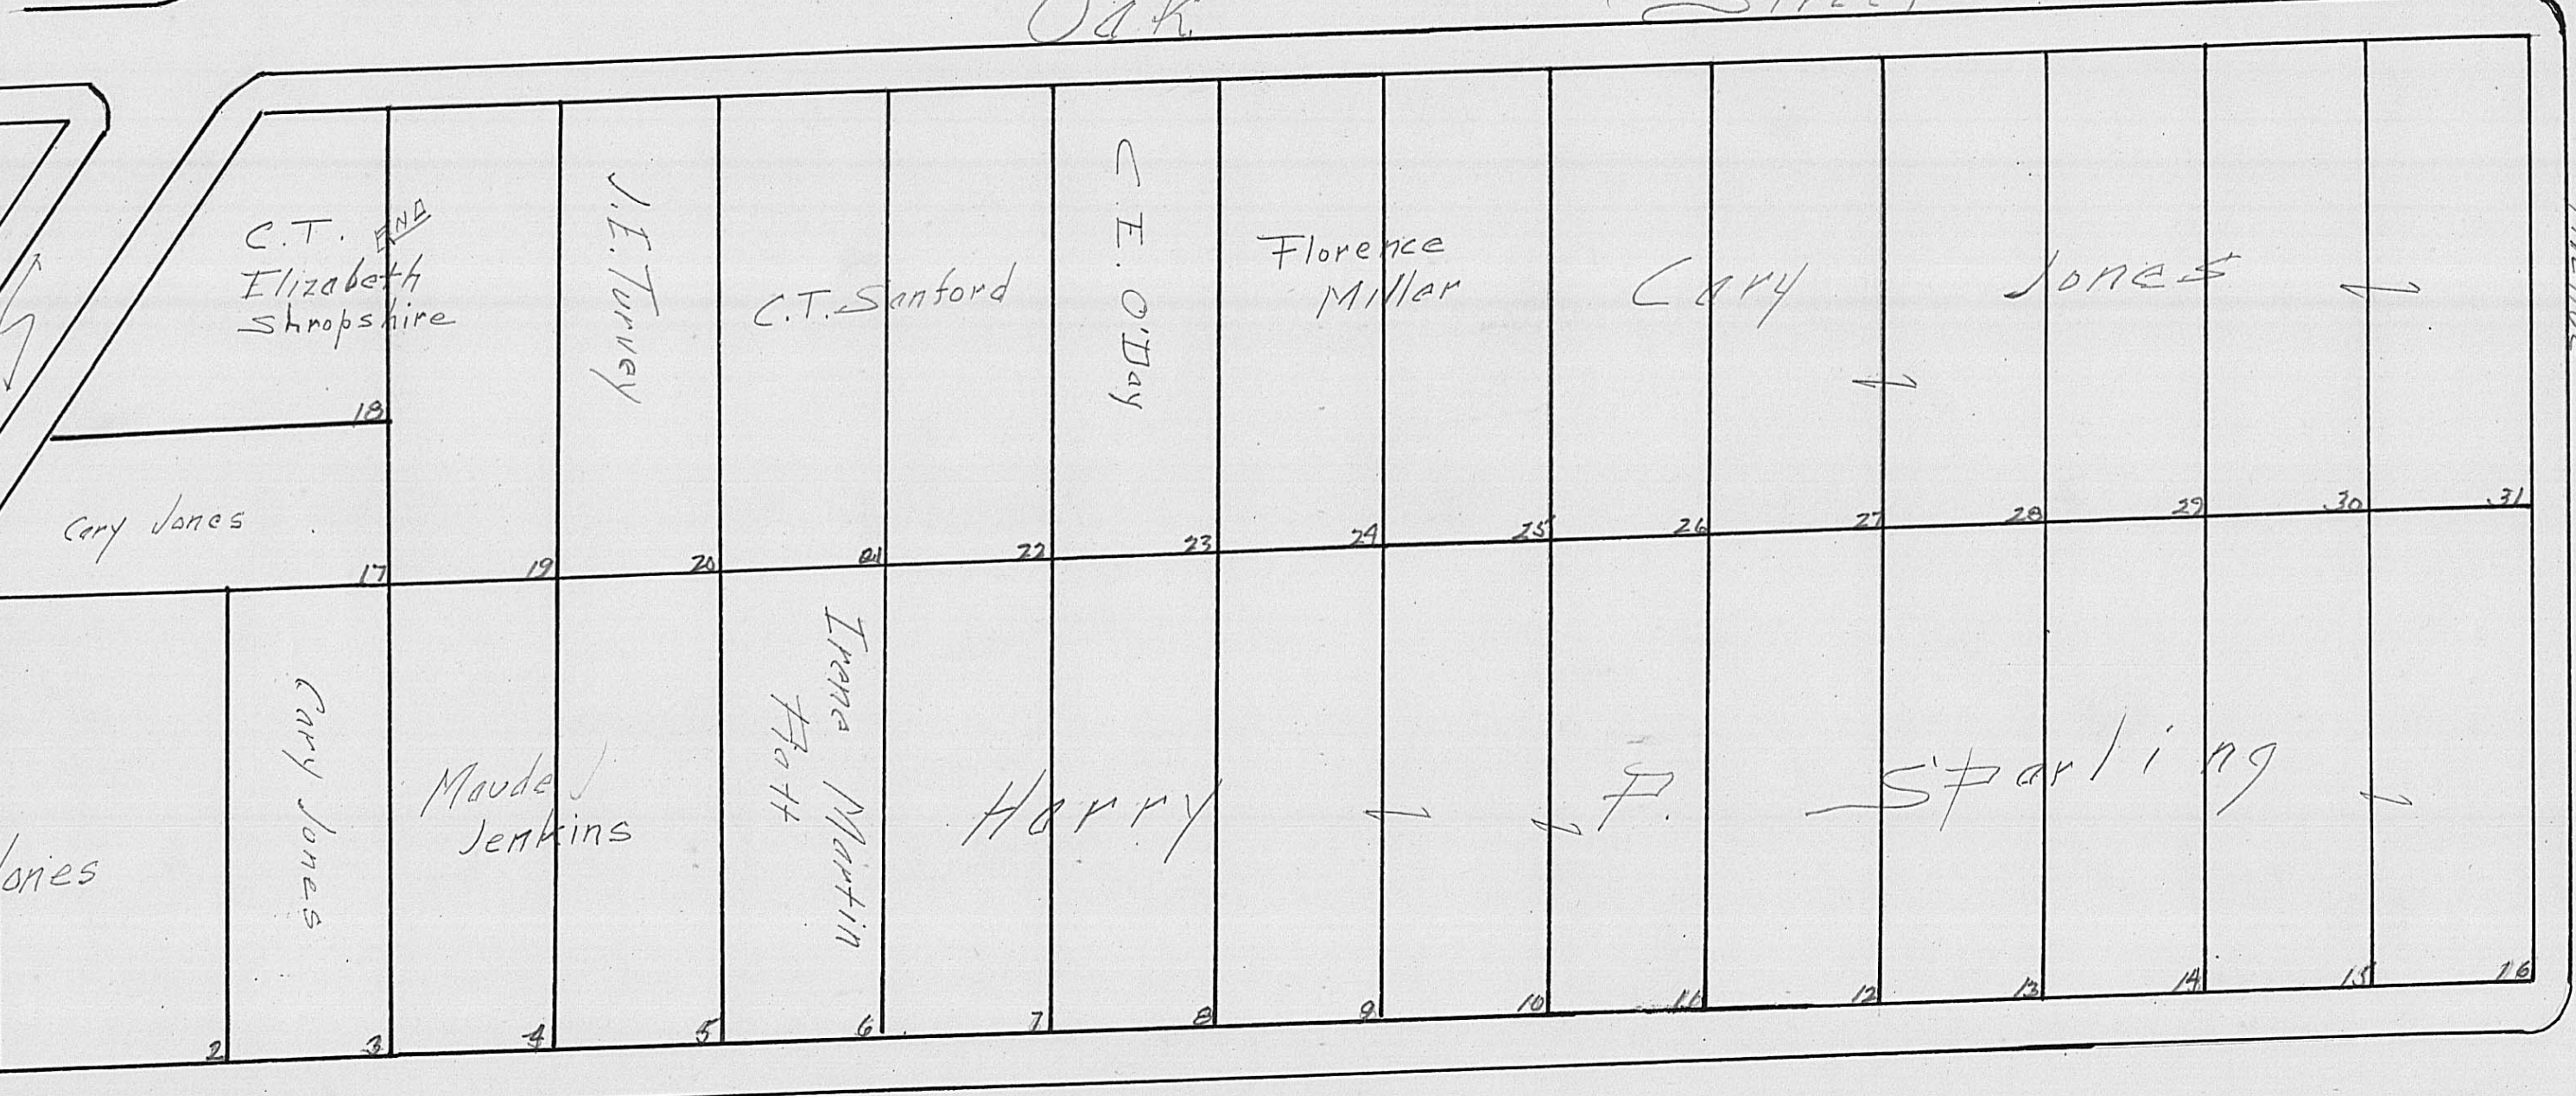 Oak Street
C.T. AND
Elizabeth
Shropshire
J.E. Turvey
C.T. Sanford
C.E. O'Day
Florence
Miller
Cary Jones
18
Cary Jones
17 19 20 21 22 23 24 25 26 27 28 29 30 31
ones
Cary Jones
Maude
Jenkins
Irene Martin
Flatt
Harry F. Sparling
2 3 4 5 6 7 8 9 10 11 12 13 14 15 16